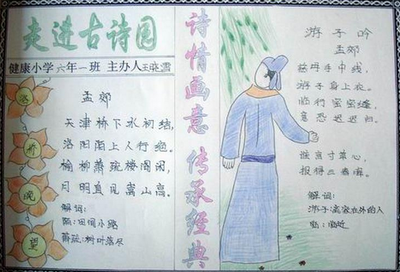 走进古诗园
健康小学六年一班 主办人
晚
望
孟郊
天津桥下冰初结,
洛阳陌上人行绝。
榆柳萧疏楼阁闲,
月明直见嵩山高。
解词:
陌:田间小路
萧疏:树叶落尽
诗情画意 传承经典
游子吟
孟郊
慈母手中线,
游子身上衣。
临行密密缝,
意恐迟迟归。
谁言寸草心,
报得三春晖。
解词:
游子:离家在外的人
临近